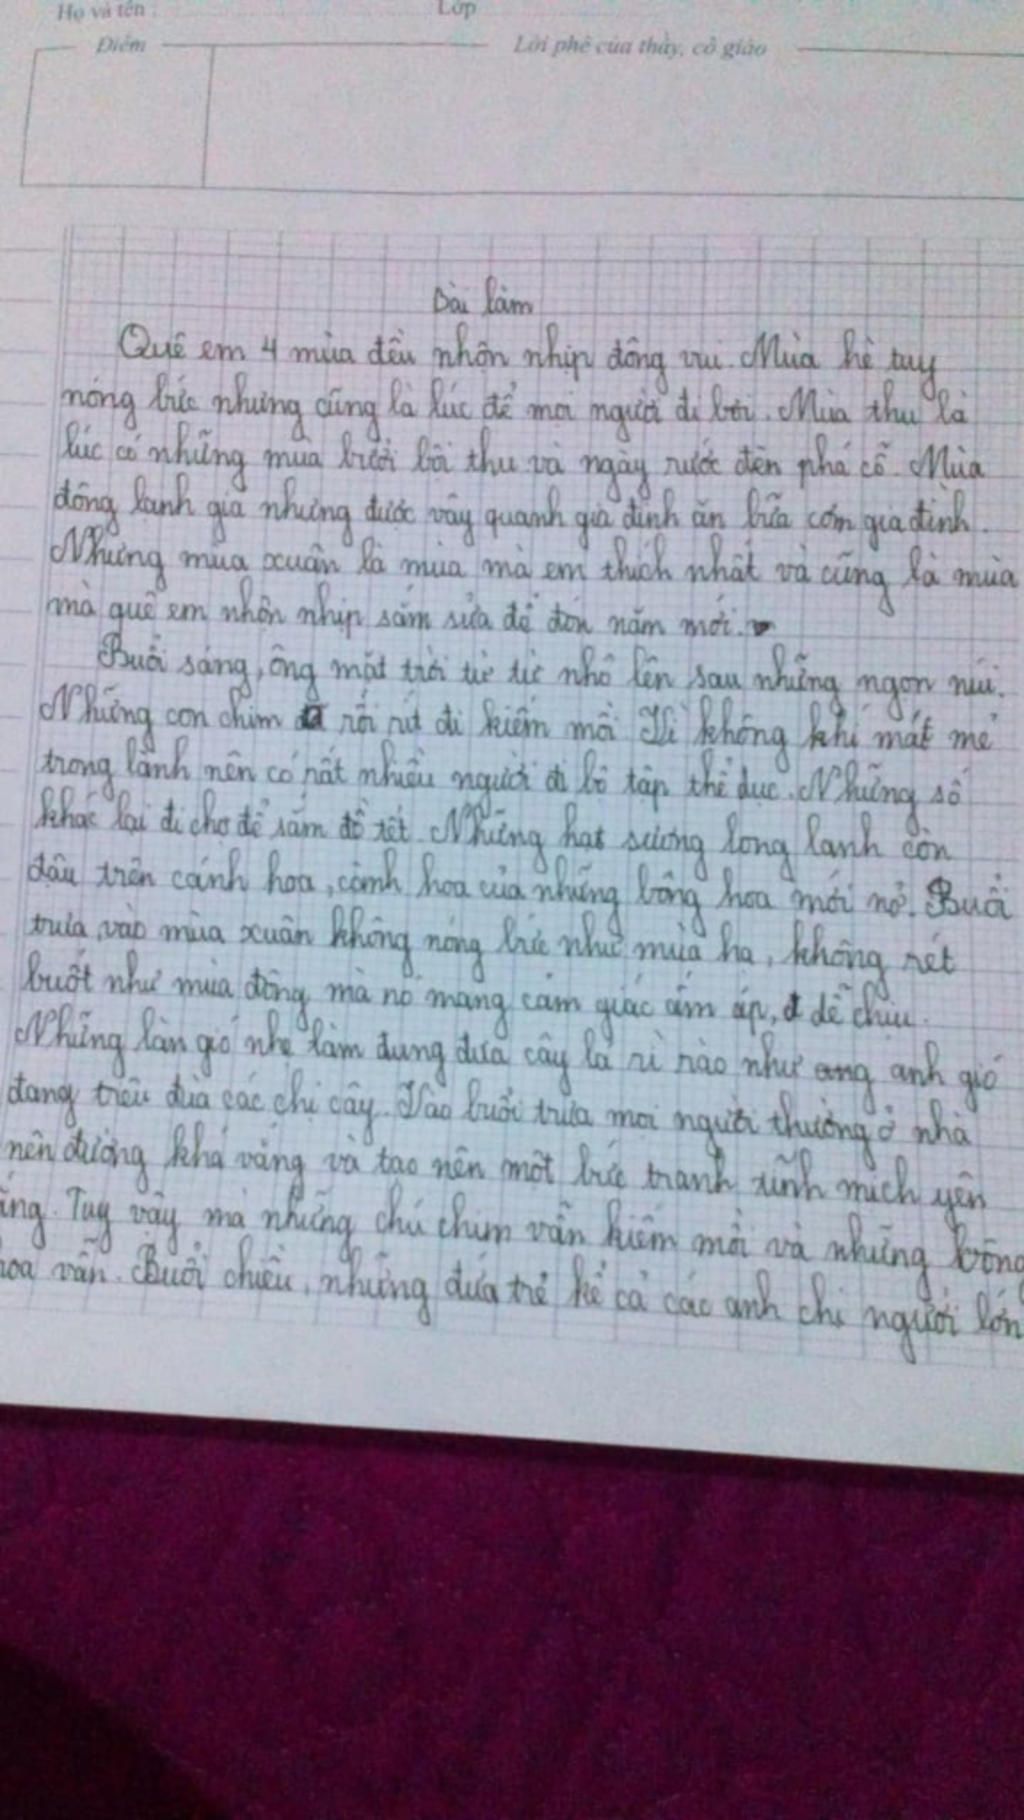 Họ và tên : Lớp
Điểm Lời phê của thầy, cô giáo
Bài làm
Quê em 4 mùa đều nhộn nhịp đông vui. Mùa hè tuy
nóng bức nhưng cũng là lúc để mọi người đi bơi. Mùa thu là
lúc có những mùa bưởi bội thu và ngày rước đèn phá cỗ. Mùa
đông lạnh giá nhưng được vây quanh gia đình ăn bữa cơm gia đình.
Nhưng mùa xuân là mùa mà em thích nhất và cũng là mùa
mà quê em nhộn nhịp sắm sửa để đón năm mới.
Buổi sáng, ông mặt trời từ từ nhô lên sau những ngọn núi.
Những con chim rối rít đi kiếm mồi. Vì không khí mát mẻ
trong lành nên có rất nhiều người đi bộ tập thể dục. Những số
khác lại đi chợ để sắm đồ tết. Những hạt sương long lanh còn
đậu trên cánh hoa, cành hoa của những bông hoa mới nở. Buổi
trưa, vào mùa xuân không nóng bức như mùa hạ, không rét
buốt như mùa đông mà nó mang cảm giác ấm áp, dễ chịu.
Những làn gió nhẹ làm đung đưa cây lá rì rào như anh gió
đang trêu đùa các chị cây. Vào buổi trưa mọi người thường ở nhà
nên đường khá vắng và tạo nên một bức tranh tĩnh mịch yên
ắng. Tuy vậy mà những chú chim vẫn kiếm mồi và những bông
hoa vẫn. Buổi chiều, những đứa trẻ kể cả các anh chị người lớn